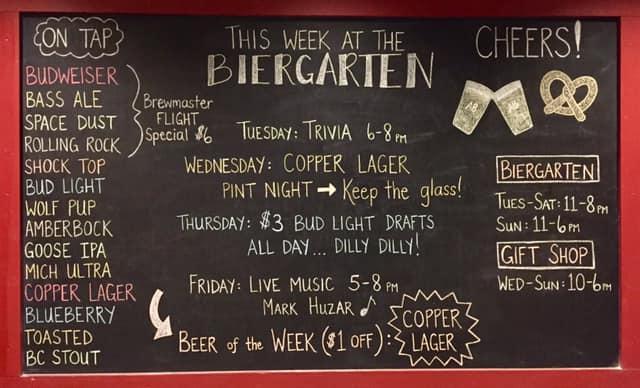 ON TAP
BUDWEISER
BASS ALE
SPACE DUST
ROLLING ROCK
SHOCK TOP
BUD LIGHT
WOLF PUP
AMBERBOCK
GOOSE IPA
MICH ULTRA
COPPER LAGER
BLUEBERRY
TOASTED
BC STOUT
Brewmaster
FLIGHT
Special $6
THIS WEEK AT THE
BIERGARTEN
TUESDAY: TRIVIA 6-8PM
WEDNESDAY: COPPER LAGER
PINT NIGHT → Keep the glass!
THURSDAY: $3 BUD LIGHT DRAFTS
ALL DAY... DILLY DILLY!
FRIDAY: LIVE MUSIC 5-8PM
MARK HUZAR
BEER of the WEEK ($1 OFF):
COPPER
LAGER
CHEERS!
AB AB
BIERGARTEN
TUES-SAT: 11-8PM
SUN: 11-6PM
GIFT SHOP
WED-SUN: 10-6PM